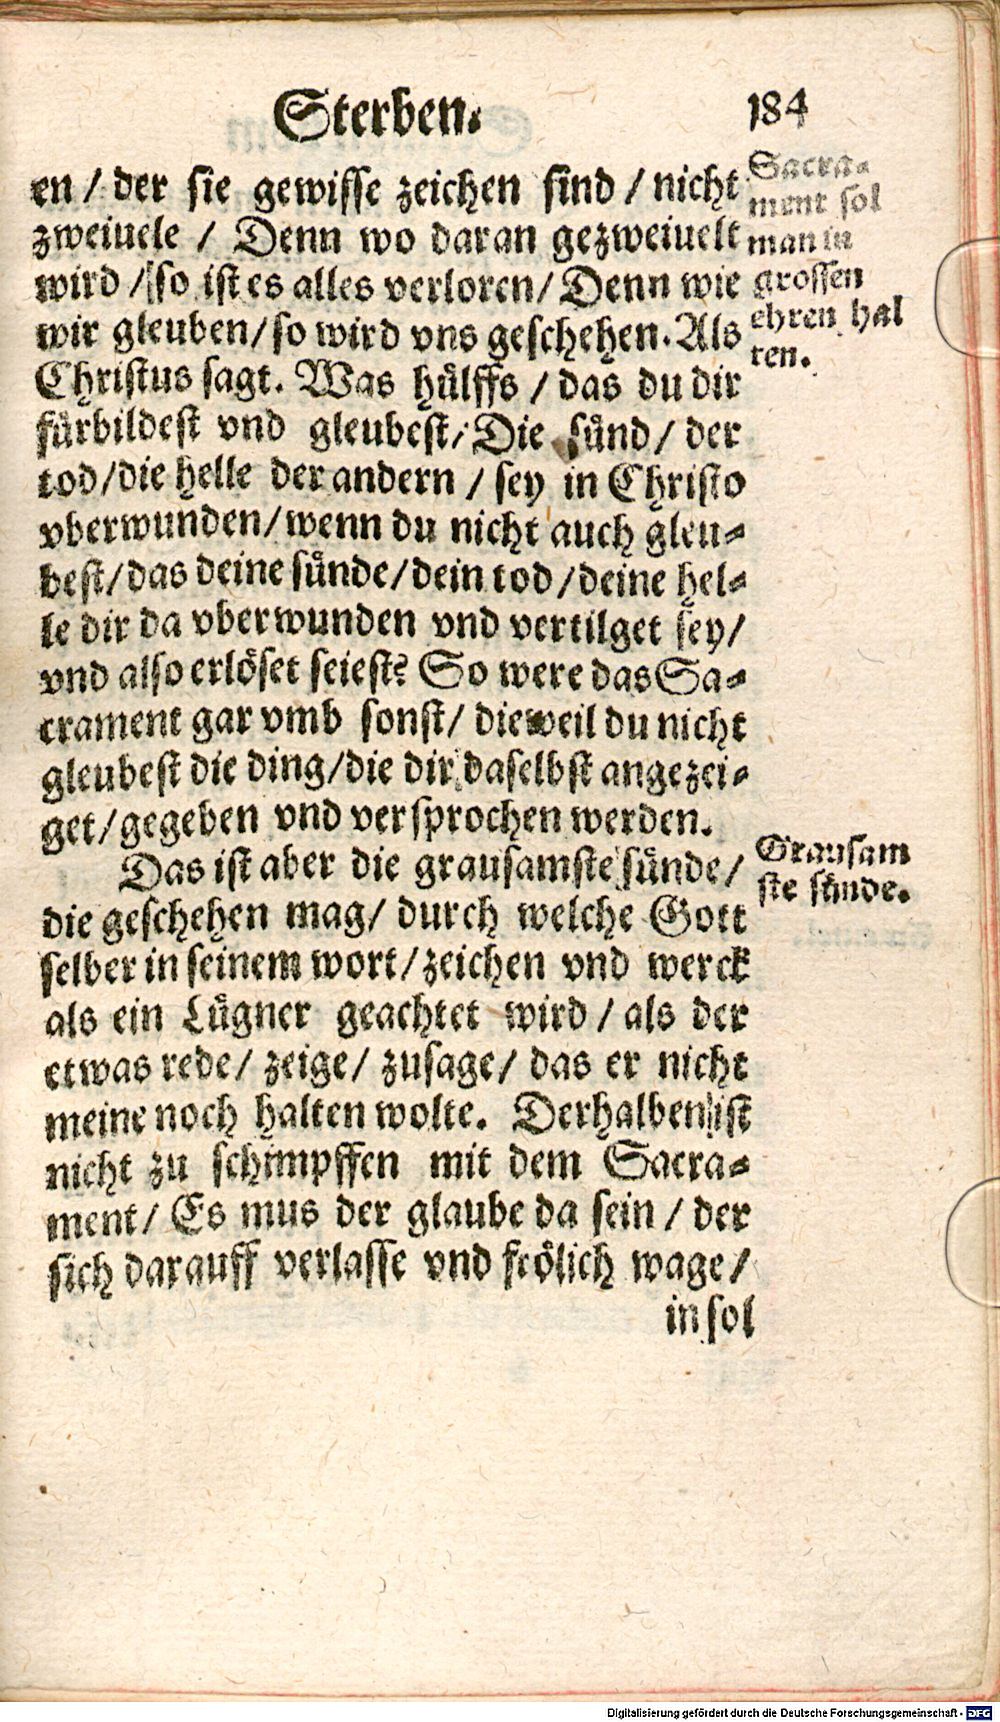 Sterben. 184
en / der sie gewisse zeichen sind / nicht
zweiuele / Denn wo daran gezweiuelt
wird / so ist es alles verloren / Denn wie
wir gleuben / so wird vns geschehen. Als
Christus sagt. Was hülffs / das du dir
fürbildest vnd gleubest / Die sünd / der
tod / die helle der andern / sey in Christo
vberwunden / wenn du nicht auch gleu-
best / das deine sünde / dein tod / deine hel-
le dir da vberwunden vnd vertilget sey /
vnd also erlöset seiest? So were das Sa-
crament gar vmb sonst / dieweil du nicht
gleubest die ding / die dir daselbst angezei-
get / gegeben vnd versprochen werden.
Das ist aber die grausamste sünde /
die geschehen mag / durch welche Gott
selber in seinem wort / zeichen vnd werck
als ein Lügner geachtet wird / als der
etwas rede / zeige / zusage / das er nicht
meine noch halten wolte. Derhalben ist
nicht zu schimpffen mit dem Sacra-
ment / Es mus der glaube da sein / der
sich darauff verlasse vnd frölich wage /
in sol
Sacra-
ment sol
man in
grossen
ehren hal
ten.
Grausam
ste sünde.
Digitalisierung gefördert durch die Deutsche Forschungsgemeinschaft - DFG